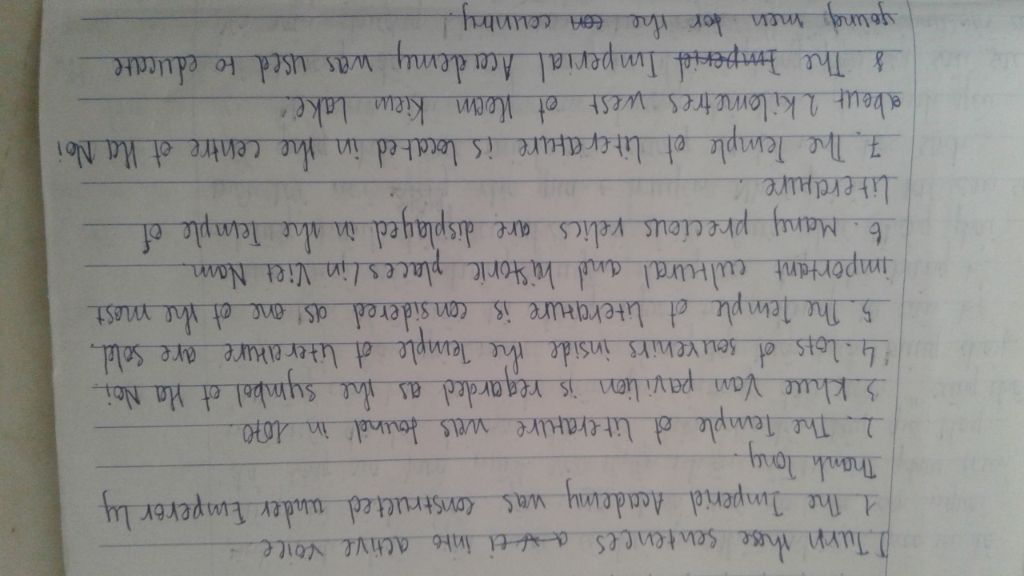 I Turn these sentences into active voice.
1. The Imperial Academy was constructed under Emperor Ly
Thanh Tong.
2. The Temple of Literature was found in 1070.
3 Khue Van pavilion is regarded as the symbol of Ha Noi
4. Lots of souvenirs inside the Temple of Literature are sold.
5. The Temple of Literature is considered as one of the most
important cultural and historic places in Viet Nam.
6 Many precious relics are displayed in the Temple of
Literature.
7. The Temple of Literature is located in the centre of Ha Noi
about 2 kilometres west of Hoan Kiem Lake.
8 The Imperial Academy was used to educate
young men for the country.